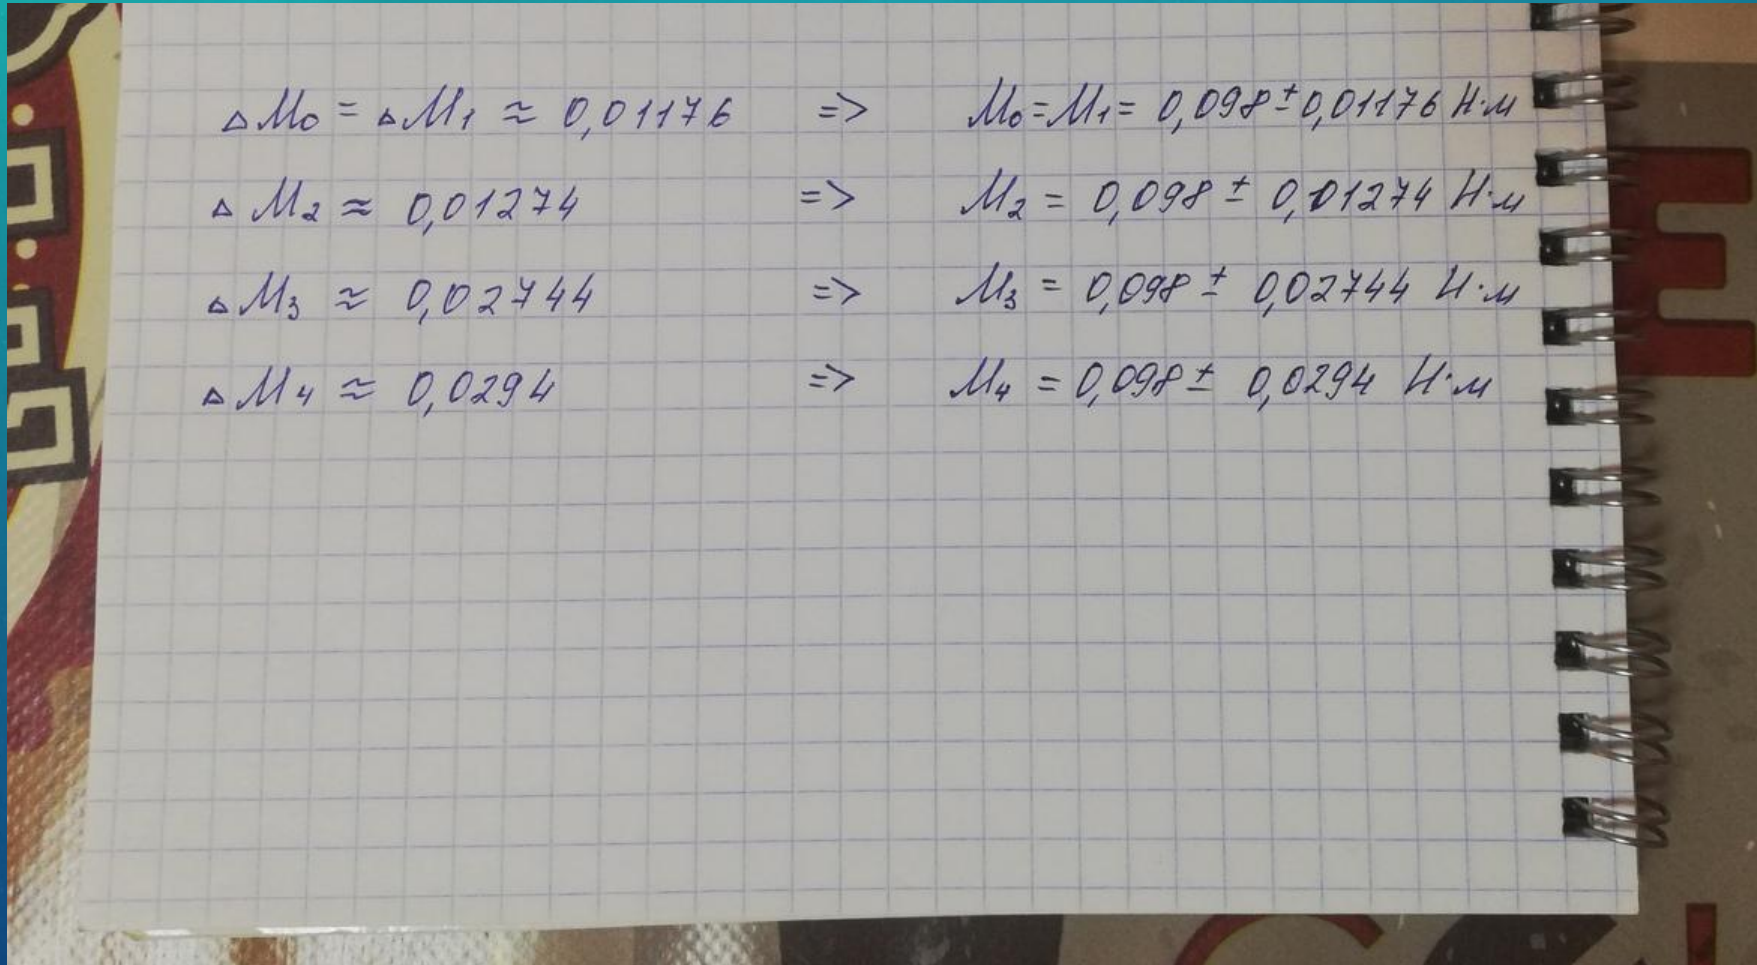 ΔM₀ = ΔM₁ ≈ 0,01176 => M₀=M₁= 0,098±0,01176 Н·м
ΔM₂ ≈ 0,01274 => M₂ = 0,098 ± 0,01274 Н·м
ΔM₃ ≈ 0,02744 => M₃ = 0,098 ± 0,02744 Н·м
ΔM₄ ≈ 0,0294 => M₄ = 0,098 ± 0,0294 Н·м
E